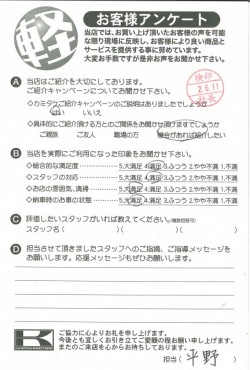 軽
お客様アンケート
当店では、お買い上げ頂いたお客様の声を可能
な限り現場に反映し、お客様により良い商品と
サービスを提供する事に努めています。
大変お手数ですが是非お声をお聞かせ下さい。
A 当店はご紹介を大切にしております。
ご紹介キャンペーンについてお聞かせ下さい。
・カミタウご紹介キャンペーンのご説明はありましたでしょうか
はい いいえ
・具体的にご紹介頂ける方とのご関係をお聞かせ頂けますでしょうか
ご親族 ご友人 職場の方 機会があれば紹介したい
検印
2.6.11
B 当店を実際にご利用になった印象をお聞かせ下さい。
◇総合的な満足度 5.大満足 4.満足 3.ふつう 2.やや不満 1.不満
◇スタッフの対応 5.大満足 4.満足 3.ふつう 2.やや不満 1.不満
◇お店の雰囲気、清掃 5.大満足 4.満足 3.ふつう 2.やや不満 1.不満
◇納車時のお車の状態 5.大満足 4.満足 3.ふつう 2.やや不満 1.不満
C 評価したいスタッフがいれば教えてください。(複数回答可)
スタッフ名( )( )( )
D 担当させて頂きましたスタッフへのご指摘、ご指導メッセージを
お願いします。応援メッセージもぜひお願いします。
ご協力に心よりお礼を申し上げます。
今後とも宜しくお引き立てご愛顧の程お願い申し上げます。
またのご来店を心からお待ちしております。
担当( 平野 )